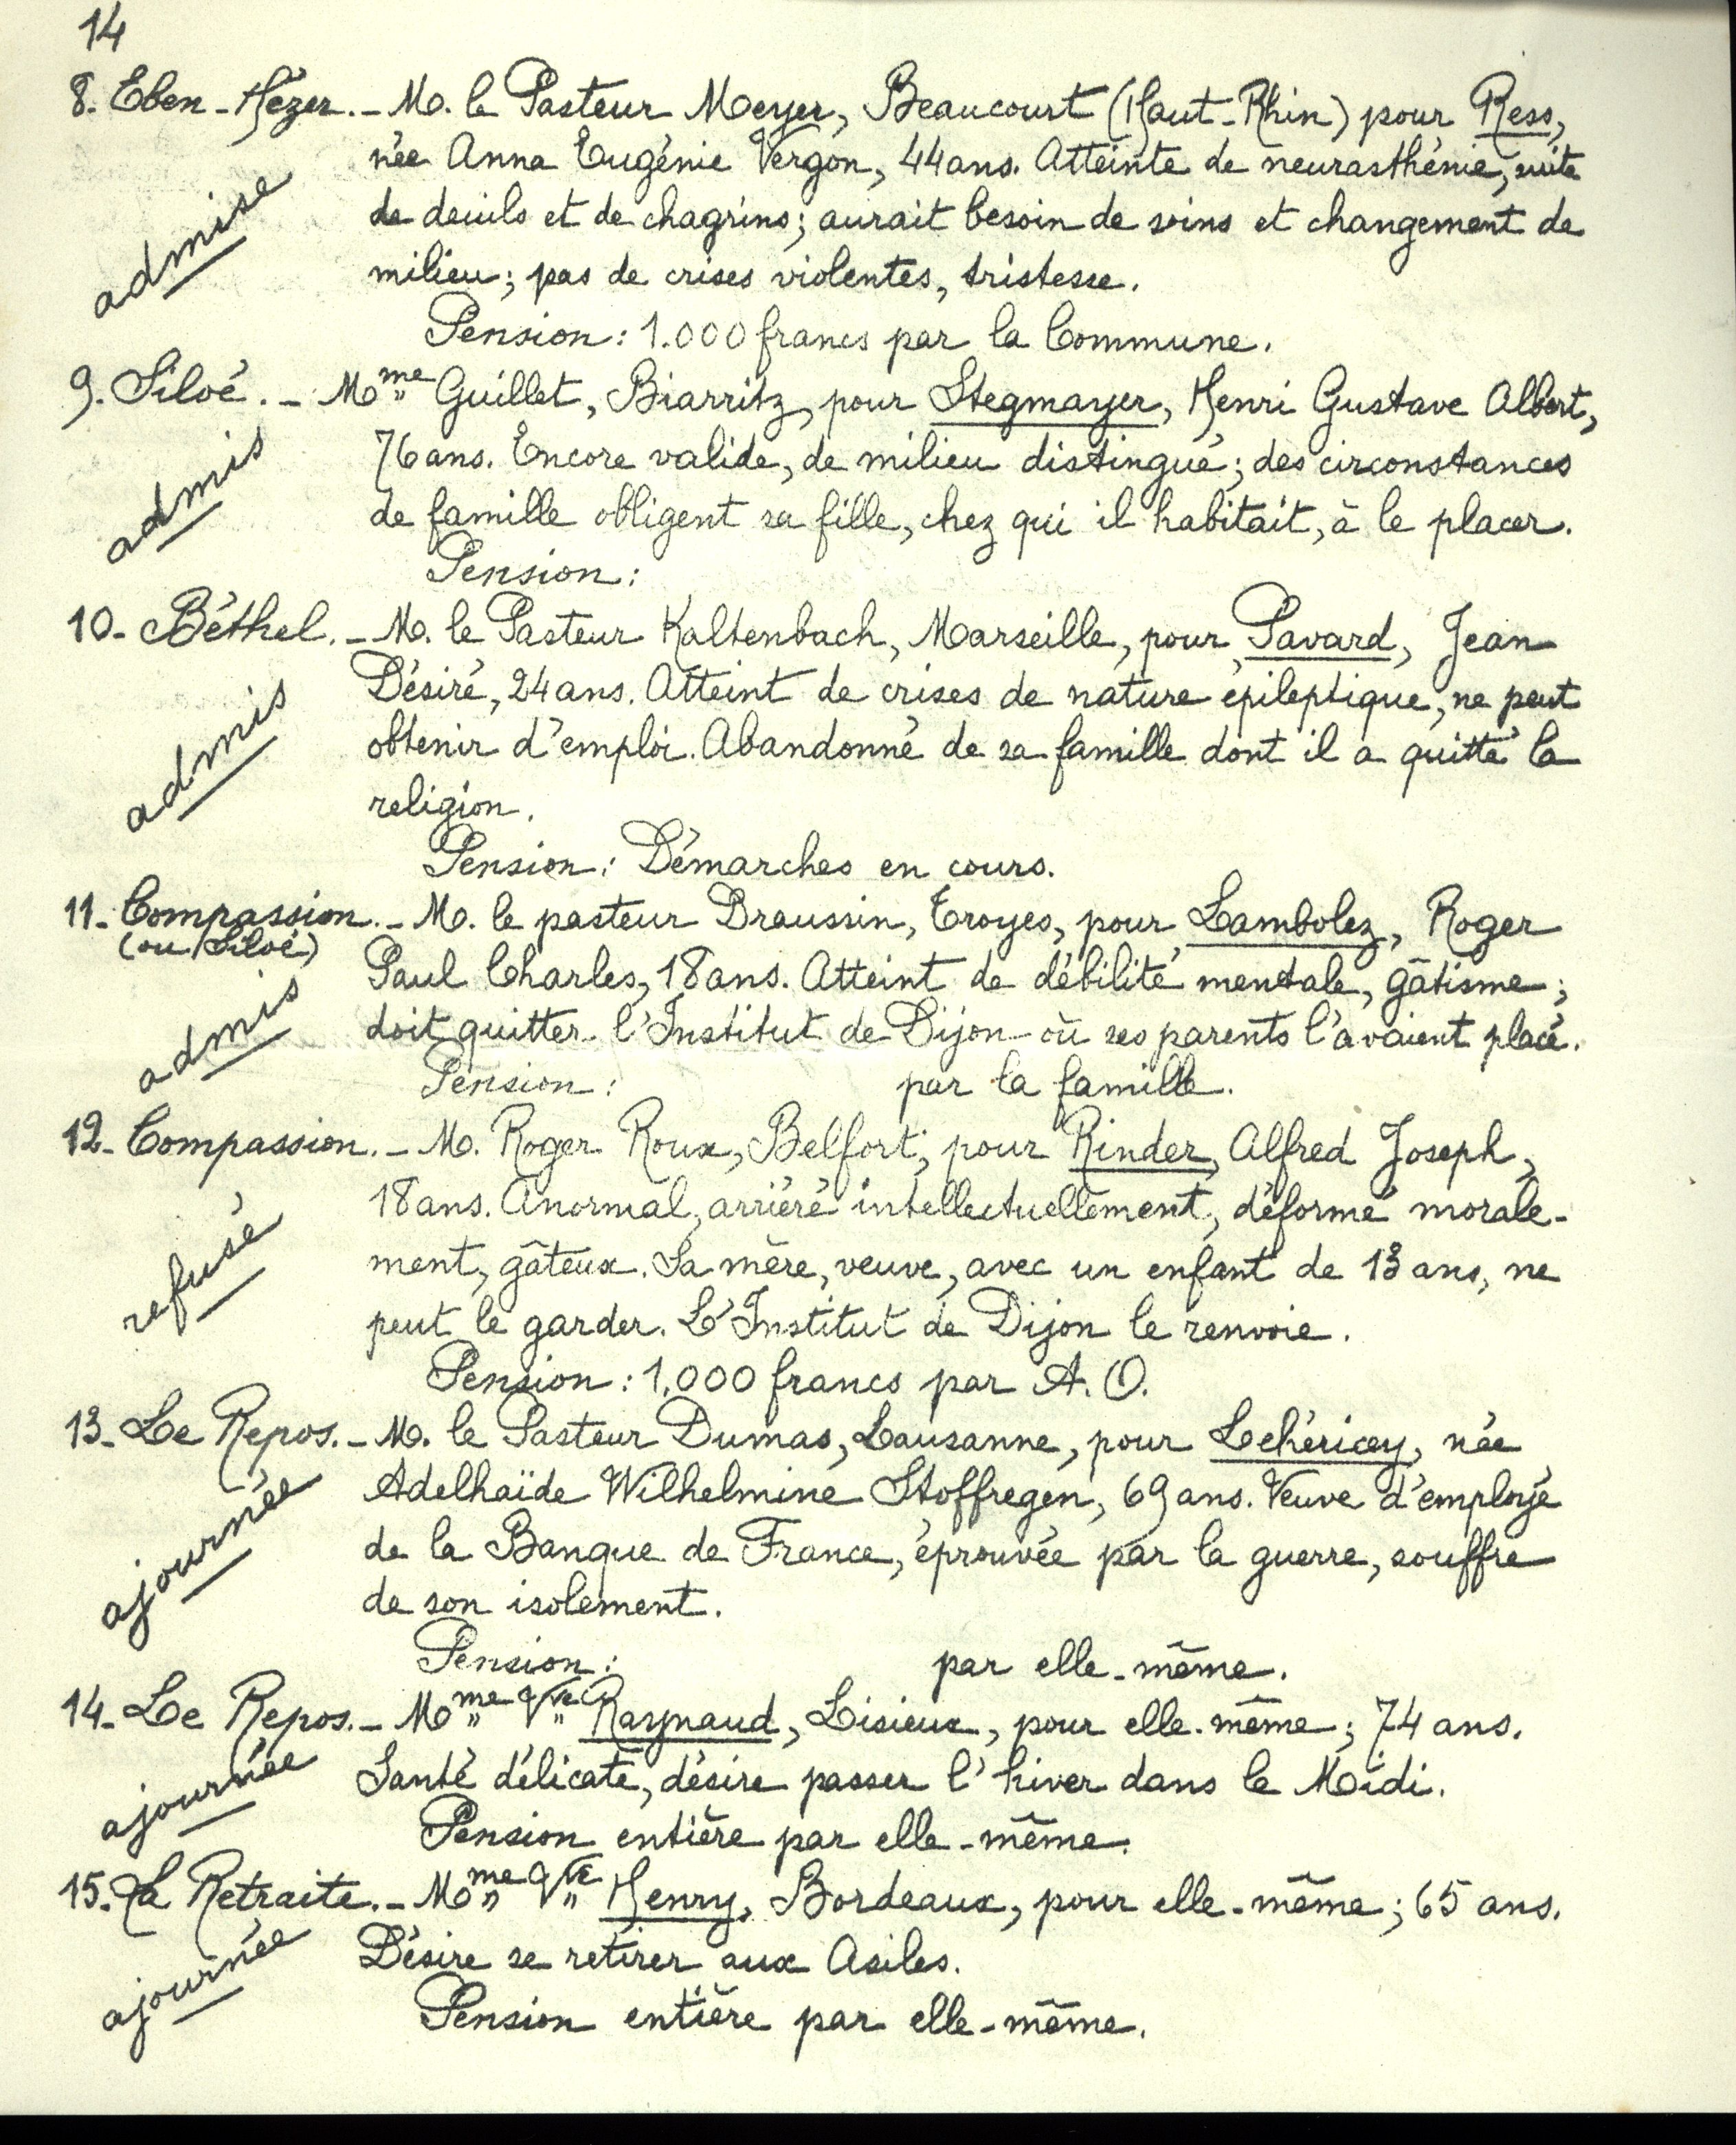 14
8. Eben-Hézer. - M. le Pasteur Meyer, Beaucourt (Haut-Rhin) pour Ress,
née Anna Eugénie Vergon, 44 ans. Atteinte de neurasthénie, suite
admise
de deuils et de chagrins; aurait besoin de soins et changement de
milieu; pas de crises violentes, tristesse.
Pension: 1.000 francs par la Commune.
9. Siloé. - Mme Guillet, Biarritz, pour Stegmayer, Henri Gustave Albert,
admis
76 ans. Encore valide, de milieu distingué; des circonstances
de famille obligent sa fille, chez qui il habitait, à le placer.
Pension:
10- Béthel. - M. le Pasteur Kaltenbach, Marseille, pour Pavard, Jean
Désiré, 24 ans. Atteint de crises de nature épileptique, ne peut
admis
obtenir d'emploi. Abandonné de sa famille dont il a quitté la
religion.
Pension: Démarches en cours.
11- Compassion. - M. le pasteur Draussin, Troyes, pour Lambolez, Roger
(ou Siloé)
Paul Charles, 18 ans. Atteint de débilité mentale, gâtisme;
admis
doit quitter l'Institut de Dijon où ses parents l'avaient placé.
Pension: par la famille.
12- Compassion. - M. Roger Roux, Belfort, pour Rinder, Alfred Joseph,
18 ans. Anormal, arriéré intellectuellement, déformé morale-
refusé
ment, gâteux. Sa mère, veuve, avec un enfant de 13 ans, ne
peut le garder. L'Institut de Dijon le renvoie.
Pension: 1.000 francs par A. O.
13- Le Repos. - M. le Pasteur Dumas, Lausanne, pour Lehéricey, née
Adelhaïde Wilhelmine Stoffregen, 69 ans. Veuve d'employé
ajournée
de la Banque de France, éprouvée par la guerre, souffre
de son isolement.
Pension: par elle-même.
14- Le Repos. - Mme Vve Raynaud, Lisieux, pour elle-même; 74 ans.
ajournée
Santé délicate, désire passer l'hiver dans le Midi.
Pension entière par elle-même.
15. La Retraite. - Mme Vve Henry, Bordeaux, pour elle-même; 65 ans.
ajournée
Désire se retirer aux Asiles.
Pension entière par elle-même.